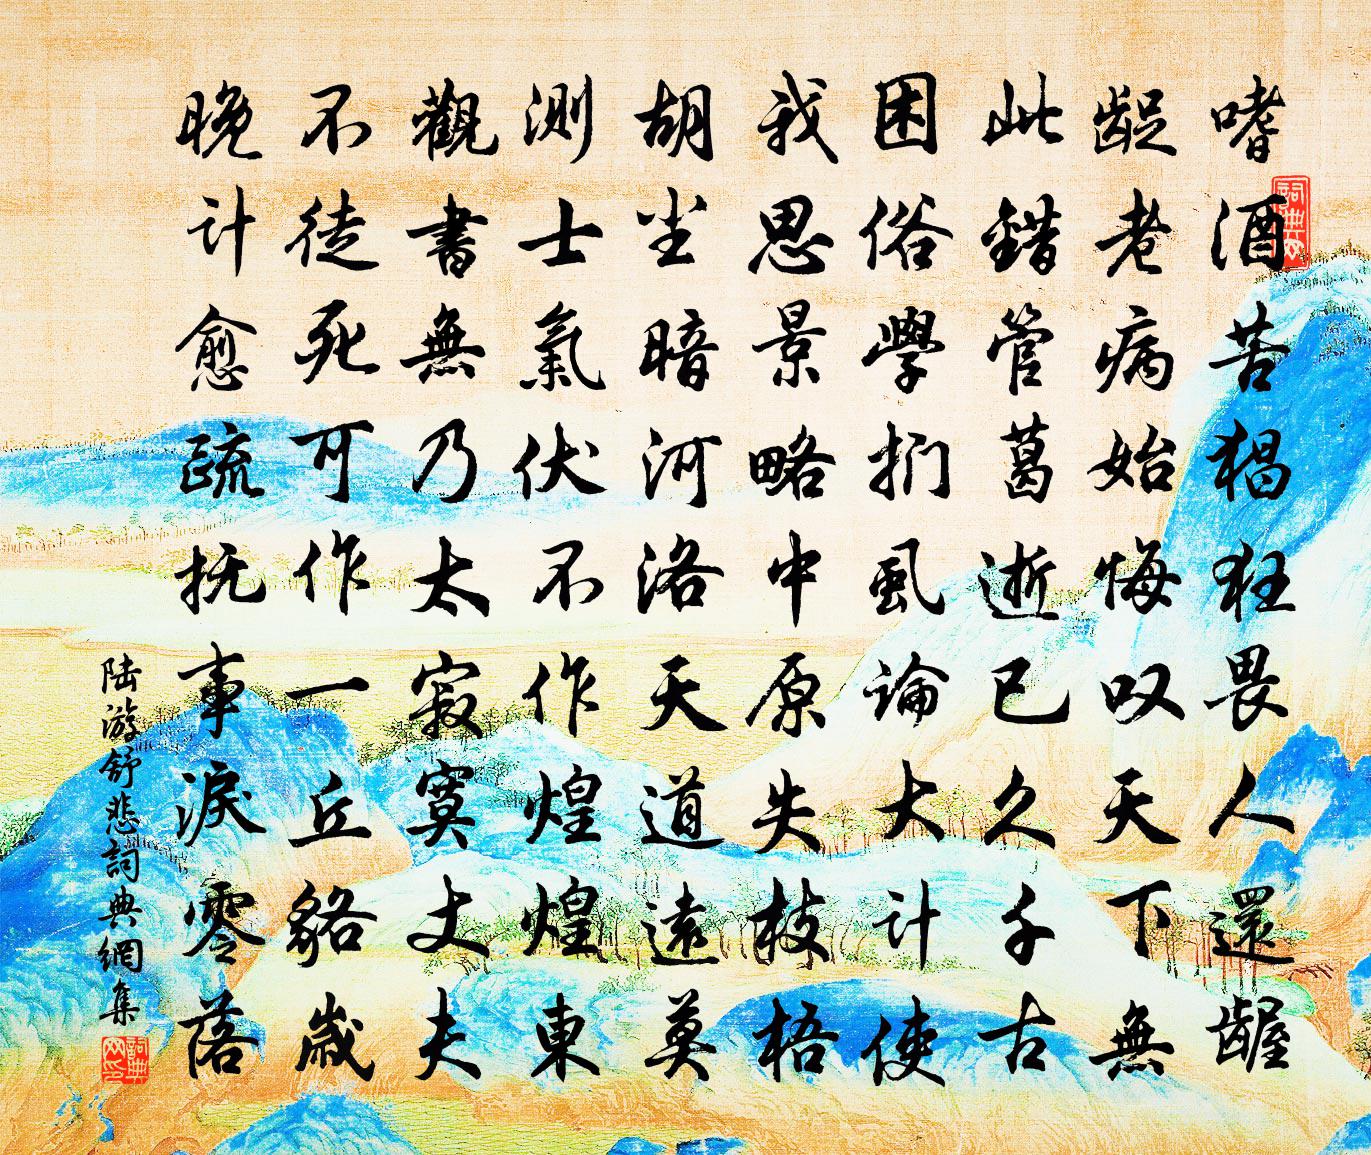 嗜酒苦猖狂畏人還齷
齪老病始悔叹天下無
此錯管葛逝已久千古
困俗學捫虱論大计使
我思景略中原失枝梧
胡尘暗河洛天道遠莫
測士氣伏不作煌煌東
觀書無乃太寂寞丈夫
不徒死可作一丘貉歲
晚计愈疏抚事淚零落
陆游舒悲詞典網集
詞典网
詞典网印